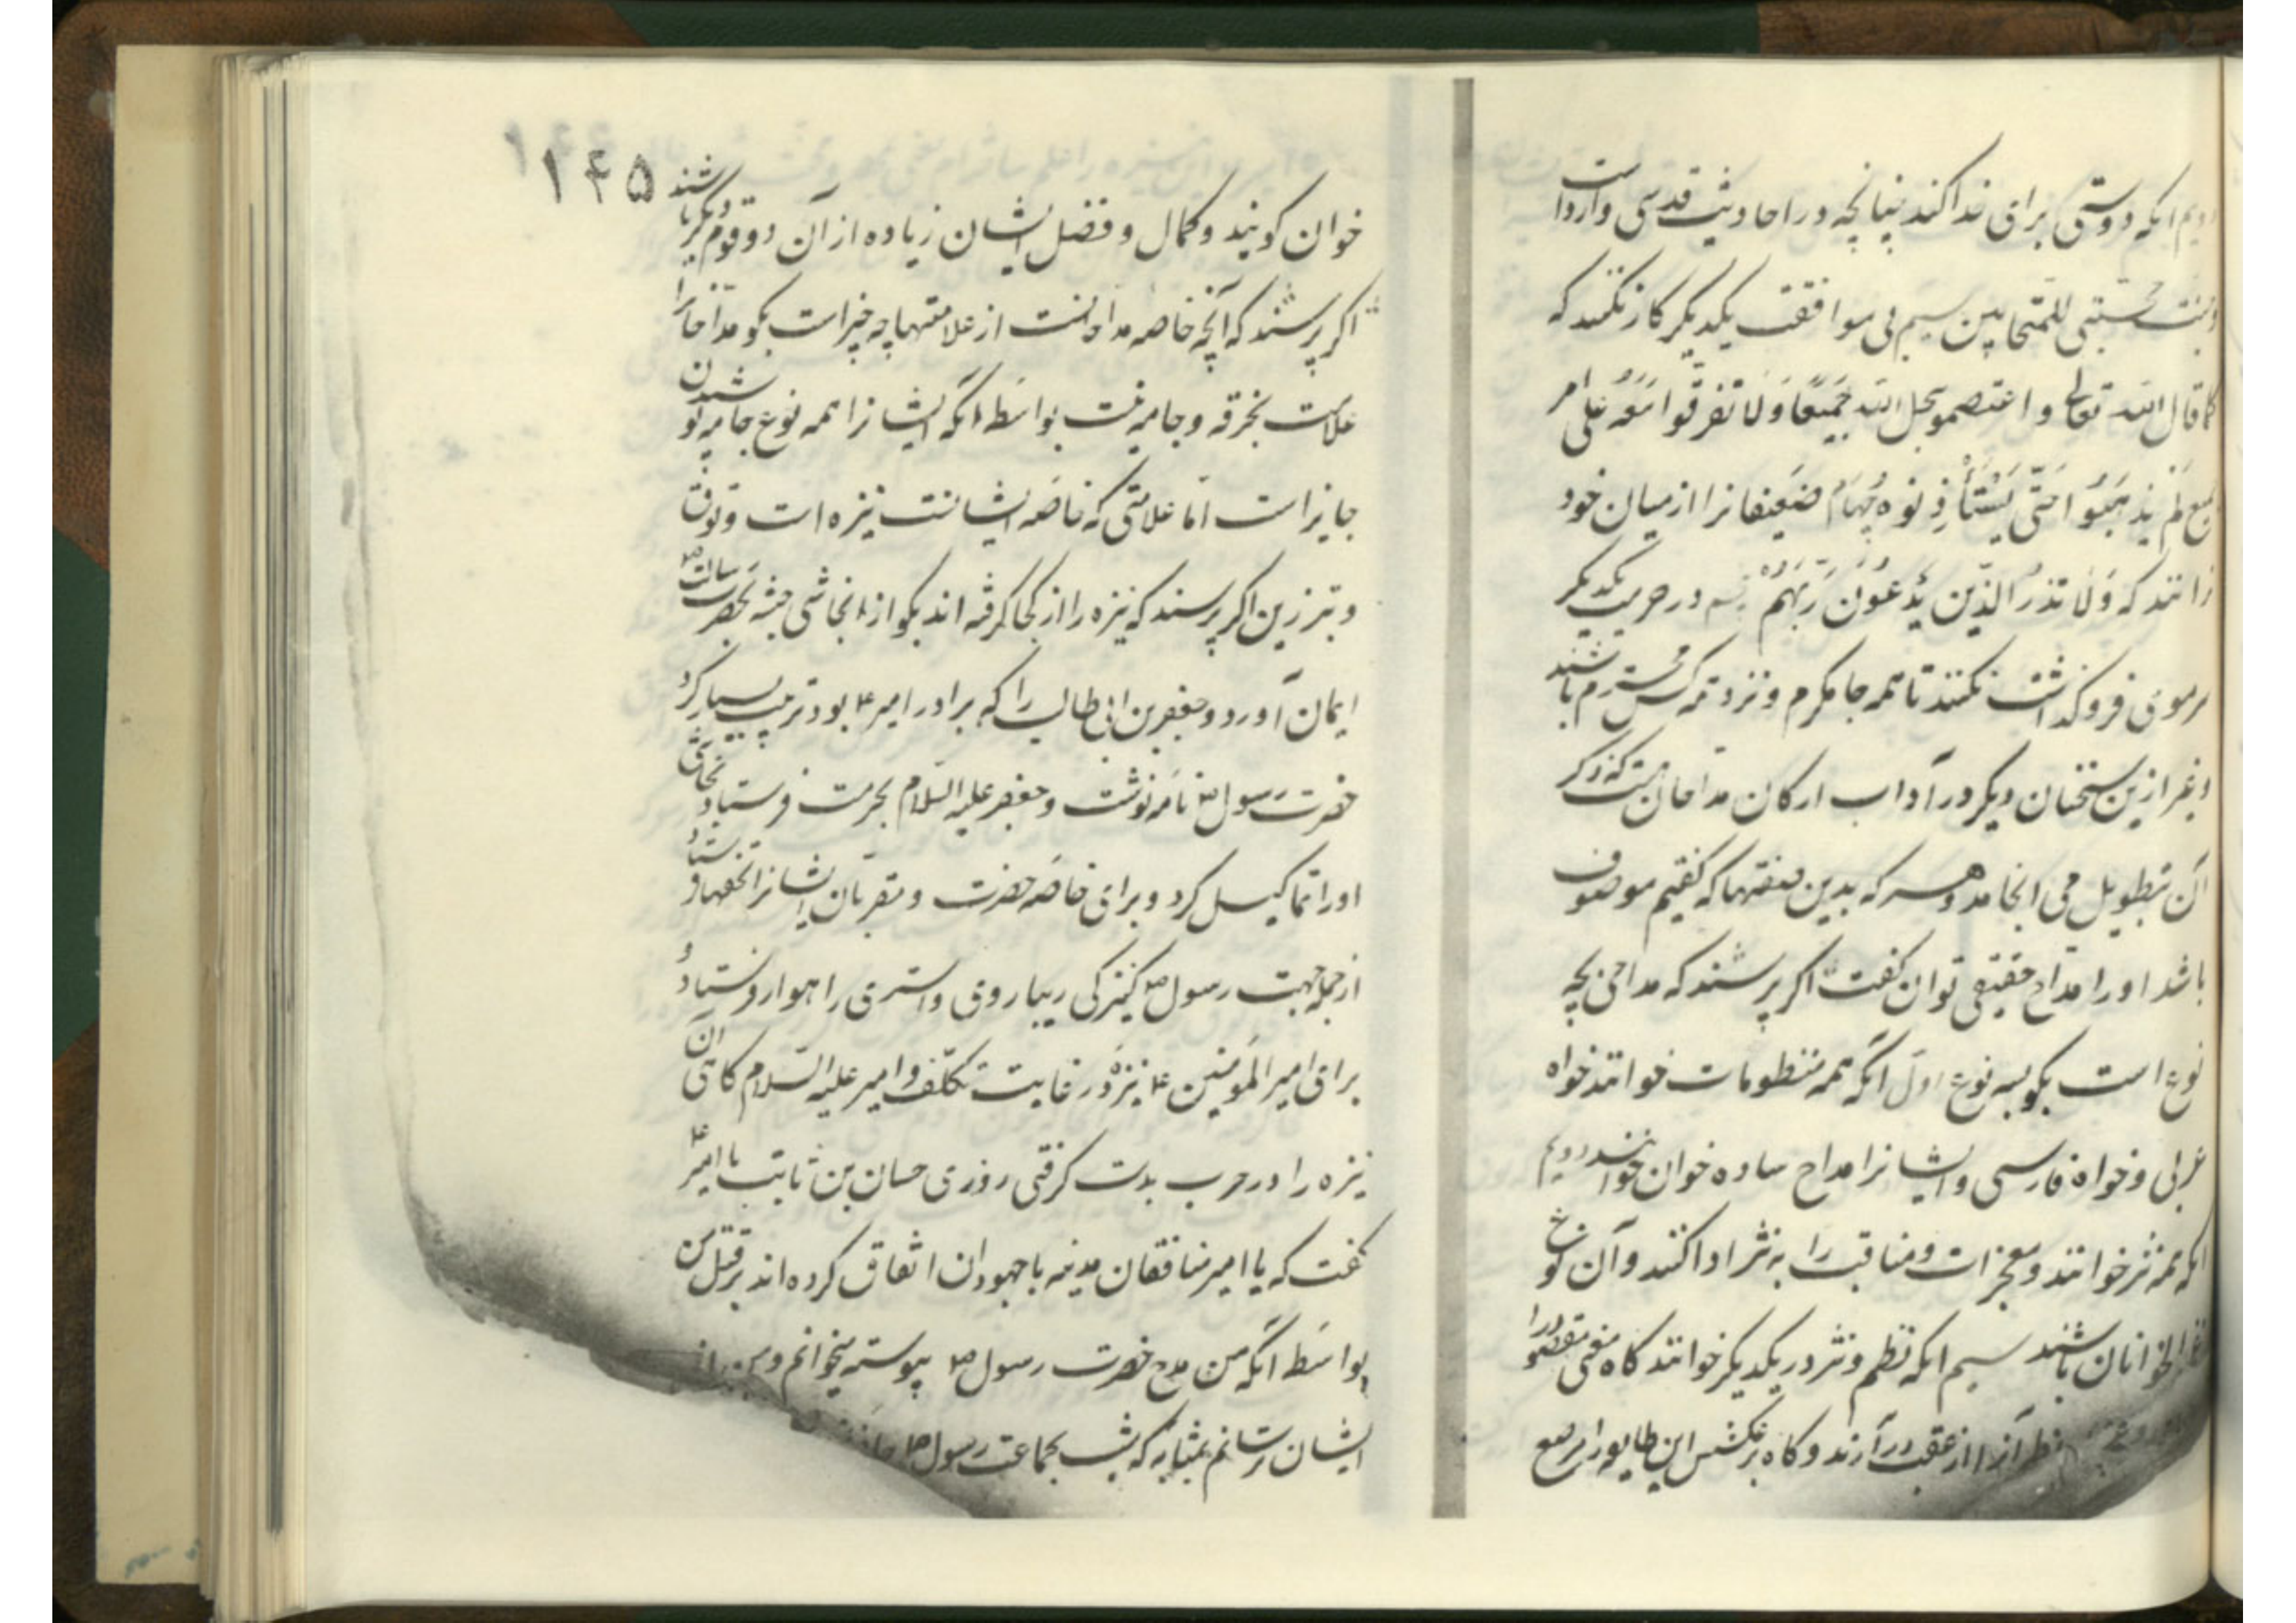 دویم انکه دوستی برای خدا کند چنانچه در احادیث قدسی وارد است
وجبت محبتی للمتحابین سیم بی موافقت یکدیکر کار نکنند که
کما قال الله تعالی و اعتصمو بحبل الله جمیعًا وَلا تفرقوا مَعَهُ علی امر
جامع لم یذهَبُوا حتّی یَستَأذِنوه چهارم ضعیفانرا از میان خود
نرانند که وَلا تَطرُد الذّین یَدعوُن رَبّهُم پنجم در حرمت یکدیکر
سرموئی فروکذاشت نکنند تا همه جا مکرم و نزد همه کس محترم باشند
و غیر ازین سخنان دیکر در آداب ارکان مداحان هست که ذکر
آن بتطویل می انجامد و هر که بدین صفتها که کفتیم موصوف
باشد او را مداح حقیقی توان کفت اکر پرسند که مداحی بچه
نوع است بکو بسه نوع اوّل آنکه همه منظومات خوانند خواه
عربی و خواه فارسی و ایشانرا مداح ساده خوان خوانند دویم
آنکه همه نثر خوانند و معجزات و مناقب را به نثر ادا کنند و آن نوع
غرا خوانان باشند سیم انکه نظم و نثر در یکدیکر خوانند کاه معنی مقصود را
نظر آنرا از عقب در آرند و کاه بر عکس این طایفه را مرصع
۱۴۵
خوان کویند و کمال و فضل ایشان زیاده از آن دو قوم دیکر باشند
اکر پرسند که آنچه خاصه مداحانست از علامتها چه چیز است بکو مداحانرا
علامت بخرقه و جامه نیست بواسَطه انکه ایشانرا همه نوع جامه پوشیدن
جایز است امّا علامتی که خاصَه ایشانست نیزه است و توق
و تبرزین اکر پرسند که نیزه را از کجا کرفته اند بکو از انجا شی حبشه بحضرت رسالت ص
ایمان آورد و جعفر بن ابی طالب را که برادر امیر ع بود تربیت بسیار کرد
حضرت رسول ص نامه نوشت و جعفر علیه السّلام بحرمت فرستاد نجاشی
او را تمام کسیل کرد و برای خاصَه حضرت و مقربان ایشانرا تحفها فرستاد
از جمله جهت رسول ص کنیزکی زیباروی و استری راهوار فرستاد و
برای امیر المؤمنین ع نیزه در غایت تکلّف و امیر علیه السّلام کاهی آن
نیزه را در حرب بدست کرفتی روزی حسان بن ثابت با امیر ع
کفت که یا امیر منافقان مدینه با جهودان اتفاق کرده اند بر قتل من
بواسَطه آنکه من مدح حضرت رسول ص پیوسته میخوانم و
ایشان رسانم بمثابه که شب بجماعت رسول ص